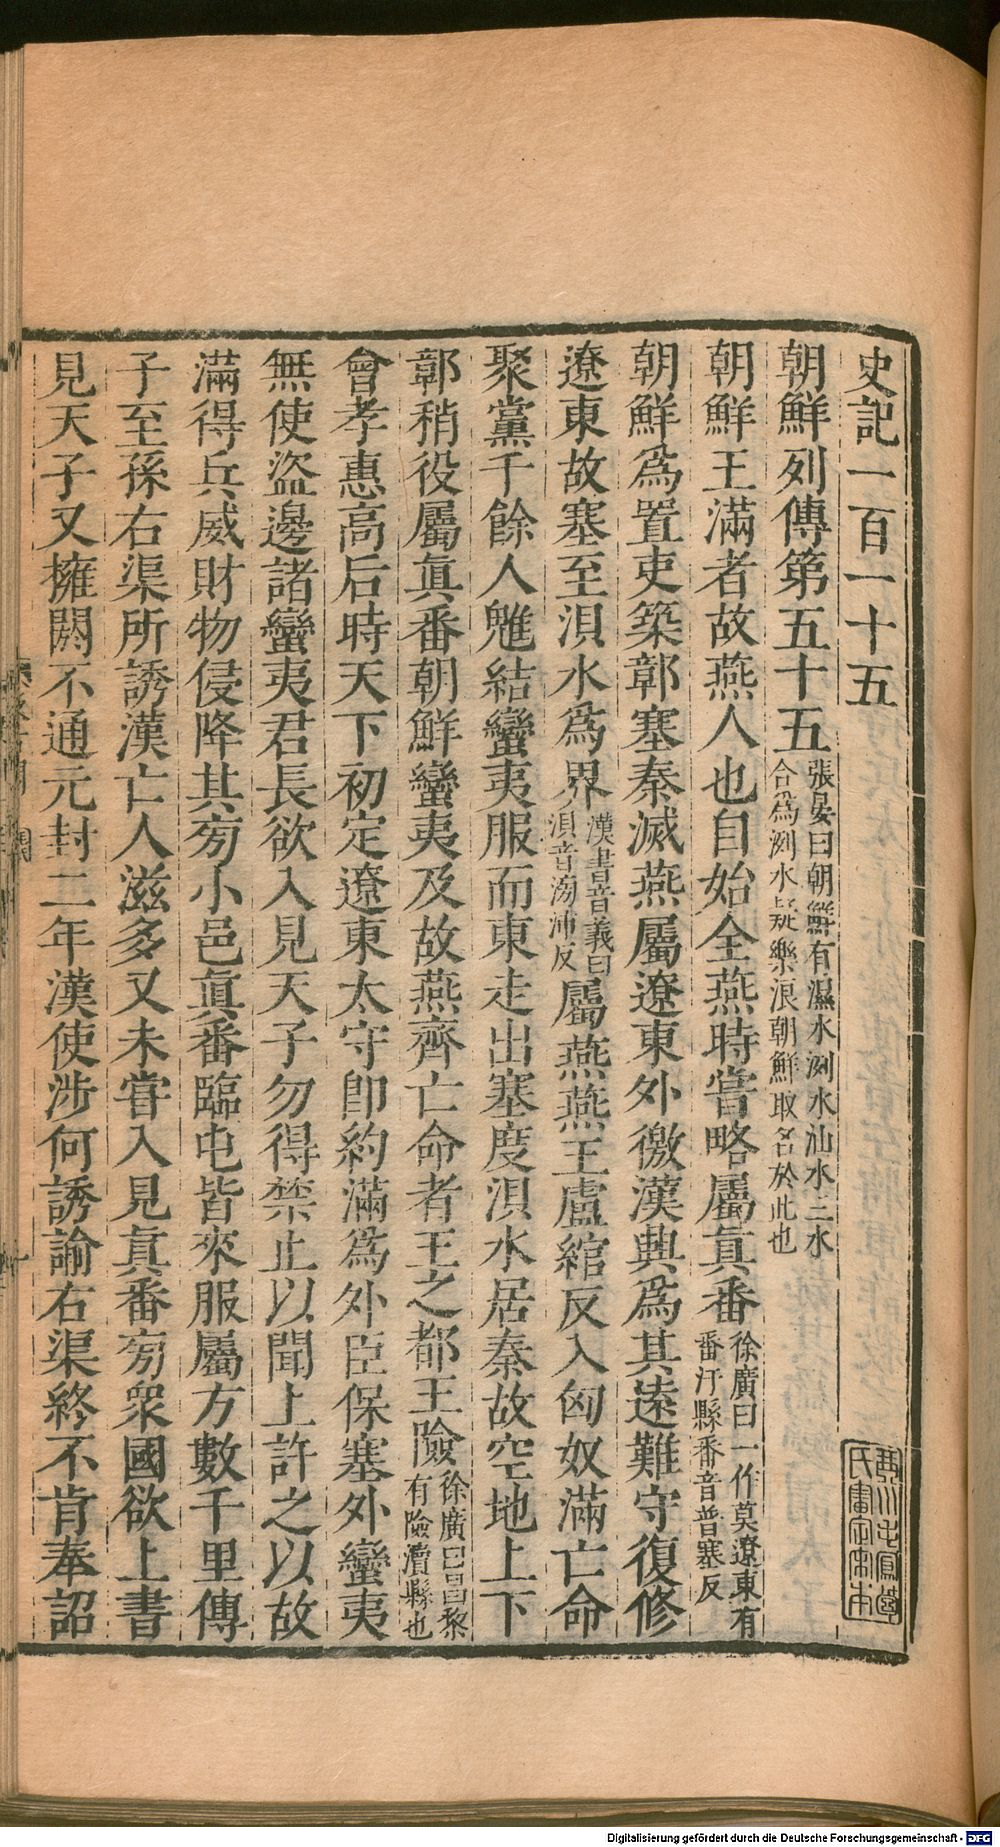 史記一百一十五
朝鮮列傳第五十五
張晏曰朝鮮有濕水洌水汕水三水
合爲洌水疑樂浪朝鮮取名於此也
朝鮮王滿者故燕人也自始全燕時嘗略屬眞番
徐廣曰一作莫遼東有
番汗縣番音普寒反
朝鮮爲置吏築鄣塞秦滅燕屬遼東外徼漢興爲其遠難守復修
遼東故塞至浿水爲界
漢書音義曰
浿音滂沛反
屬燕燕王盧綰反入匈奴滿亡命
聚黨千餘人魋結蠻夷服而東走出塞度浿水居秦故空地上下
鄣稍役屬眞番朝鮮蠻夷及故燕齊亡命者王之都王險
徐廣曰昌黎
有險瀆縣也
會孝惠高后時天下初定遼東太守卽約滿爲外臣保塞外蠻夷
無使盜邊諸蠻夷君長欲入見天子勿得禁止以聞上許之以故
滿得兵威財物侵降其旁小邑眞番臨屯皆來服屬方數千里傳
子至孫右渠所誘漢亡人滋多又未嘗入見眞番旁衆國欲上書
見天子又擁閼不通元封二年漢使涉何誘諭右渠終不肯奉詔
Digitalisierung gefördert durch die Deutsche Forschungsgemeinschaft - DFG